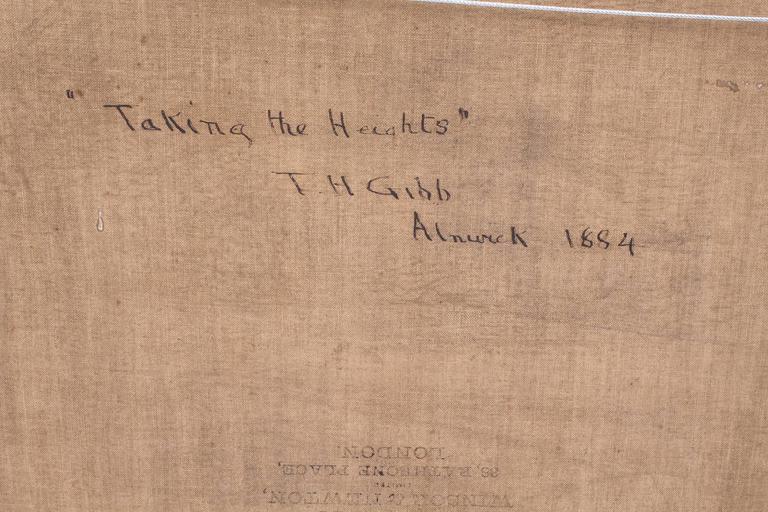 "Taking the Heights"
T. H Gibb
Alnwick 1884
WINSOR & NEWTON,
LIMITED
38, RATHBONE PLACE,
LONDON